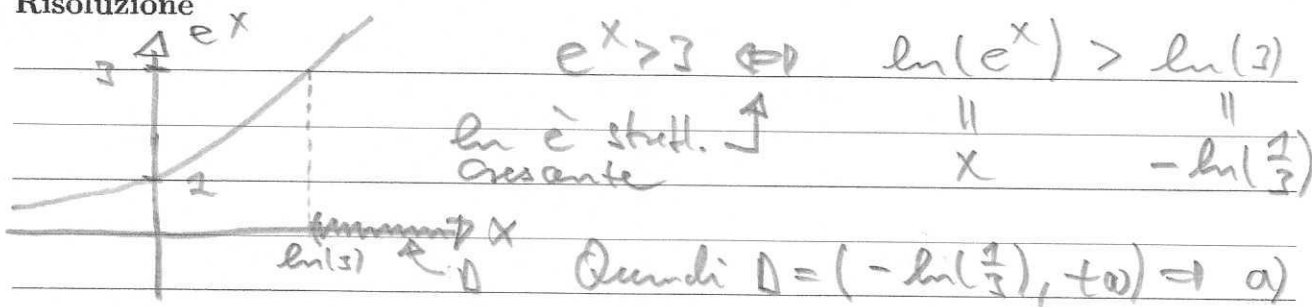 Risoluzione
e^x
3
e^x > 3 ⇔ ln(e^x) > ln(3)
ln è strett. crescente
=
=
1
x
-ln(1/3)
x
ln(3)
D
Quindi D = (-ln(1/3), +∞) ⇒ a)